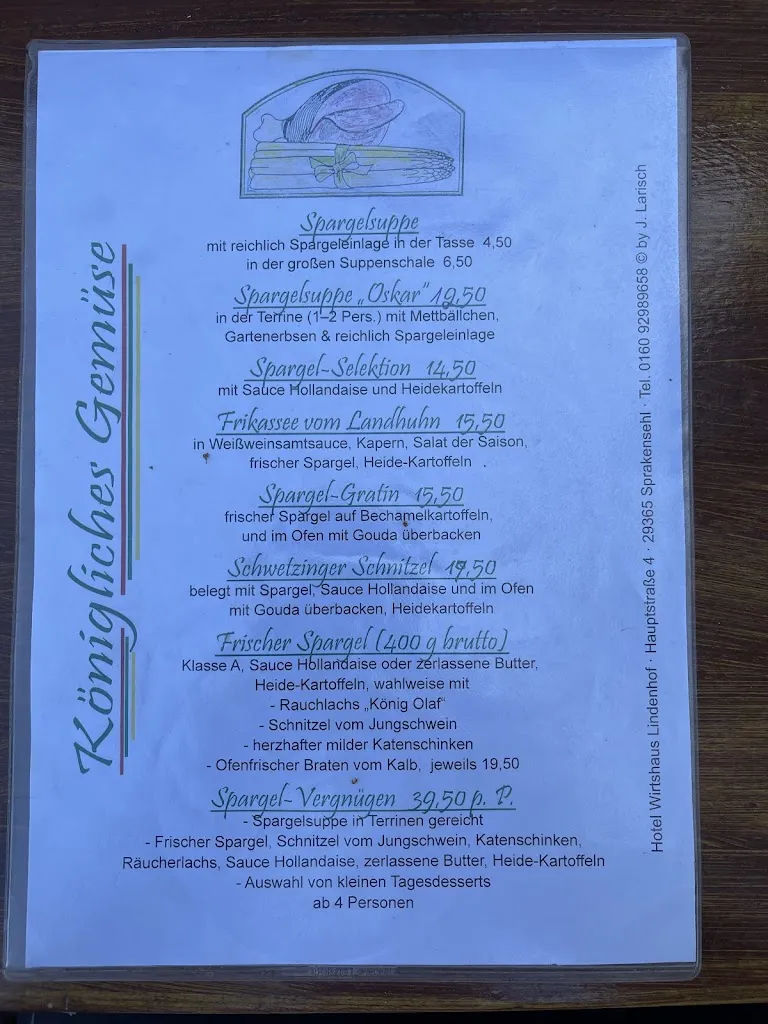 Königliches Gemüse
Spargelsuppe
mit reichlich Spargeleinlage in der Tasse 4,50
in der großen Suppenschale 6,50
Spargelsuppe „Oskar“ 19,50
in der Terrine (1–2 Pers.) mit Mettbällchen,
Gartenerbsen & reichlich Spargeleinlage
Spargel-Selektion 14,50
mit Sauce Hollandaise und Heidekartoffeln
Frikassee vom Landhuhn 15,50
in Weißweinsamtsauce, Kapern, Salat der Saison,
frischer Spargel, Heide-Kartoffeln .
Spargel-Gratin 15,50
frischer Spargel auf Bechamelkartoffeln,
und im Ofen mit Gouda überbacken
Schwetzinger Schnitzel 19,50
belegt mit Spargel, Sauce Hollandaise und im Ofen
mit Gouda überbacken, Heidekartoffeln
Frischer Spargel (400 g brutto)
Klasse A, Sauce Hollandaise oder zerlassene Butter,
Heide-Kartoffeln, wahlweise mit
- Rauchlachs „König Olaf“
- Schnitzel vom Jungschwein
- herzhafter milder Katenschinken
- Ofenfrischer Braten vom Kalb, jeweils 19,50
Spargel-Vergnügen 39,50 p. P.
- Spargelsuppe in Terrinen gereicht
- Frischer Spargel, Schnitzel vom Jungschwein, Katenschinken,
Räucherlachs, Sauce Hollandaise, zerlassene Butter, Heide-Kartoffeln
- Auswahl von kleinen Tagesdesserts
ab 4 Personen
Hotel Wirtshaus Lindenhof · Hauptstraße 4 · 29365 Sprakensehl · Tel. 0160 92989658 © by J. Larisch